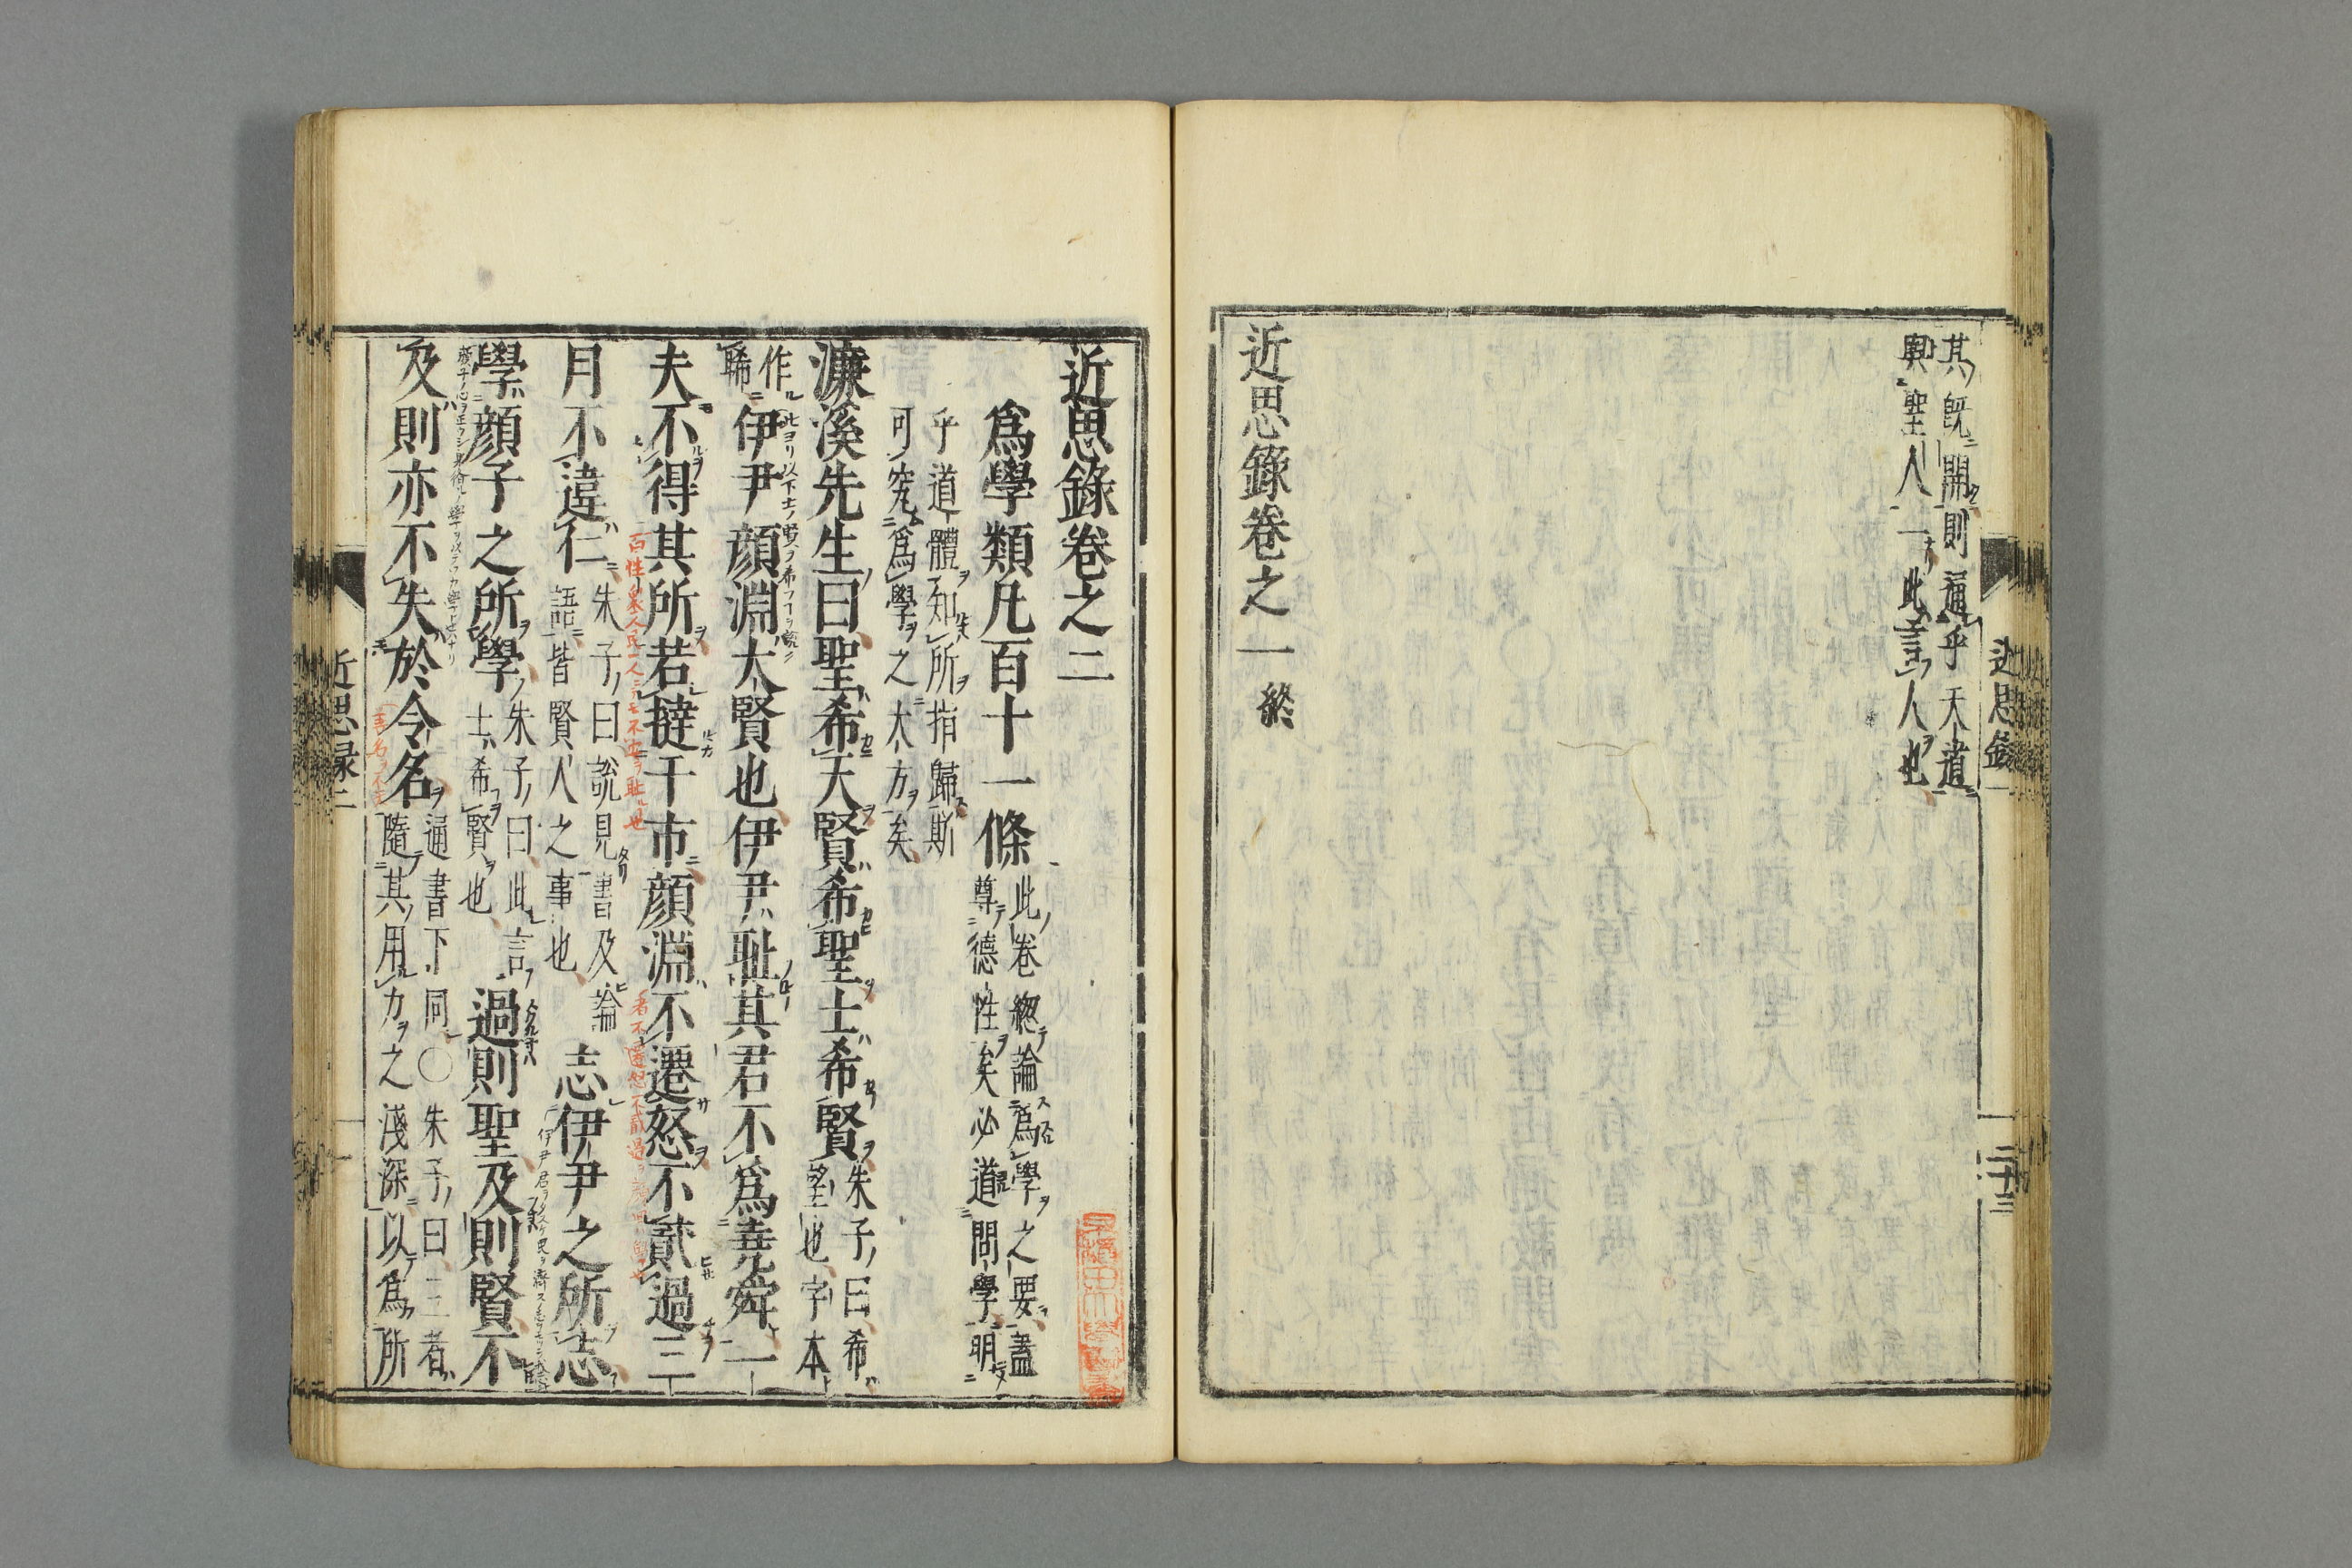 其既開則通乎天道
與聖人一此言人也
近思錄卷之一終
近思錄一
二十三
近思錄卷之二
爲學類凡百十一條
此卷總論爲學之要蓋
尊德性矣必道問學明
乎道體知所指歸斯
可究爲學之大方矣
濂溪先生曰聖希天賢希聖士希賢
朱子曰希
望也字本
作
睎
伊尹顔淵大賢也伊尹耻其君不爲堯舜一
夫不得其所若撻于市顔淵不遷怒不貳過三
月不違仁
朱子曰說見書及論
語皆賢人之事也
志伊尹之所志
學顔子之所學
朱子曰此言
士希賢也
過則聖及則賢不
及則亦不失於令名
通書下同○朱子曰三者
隨其用力之淺深以爲所
近思录二
一